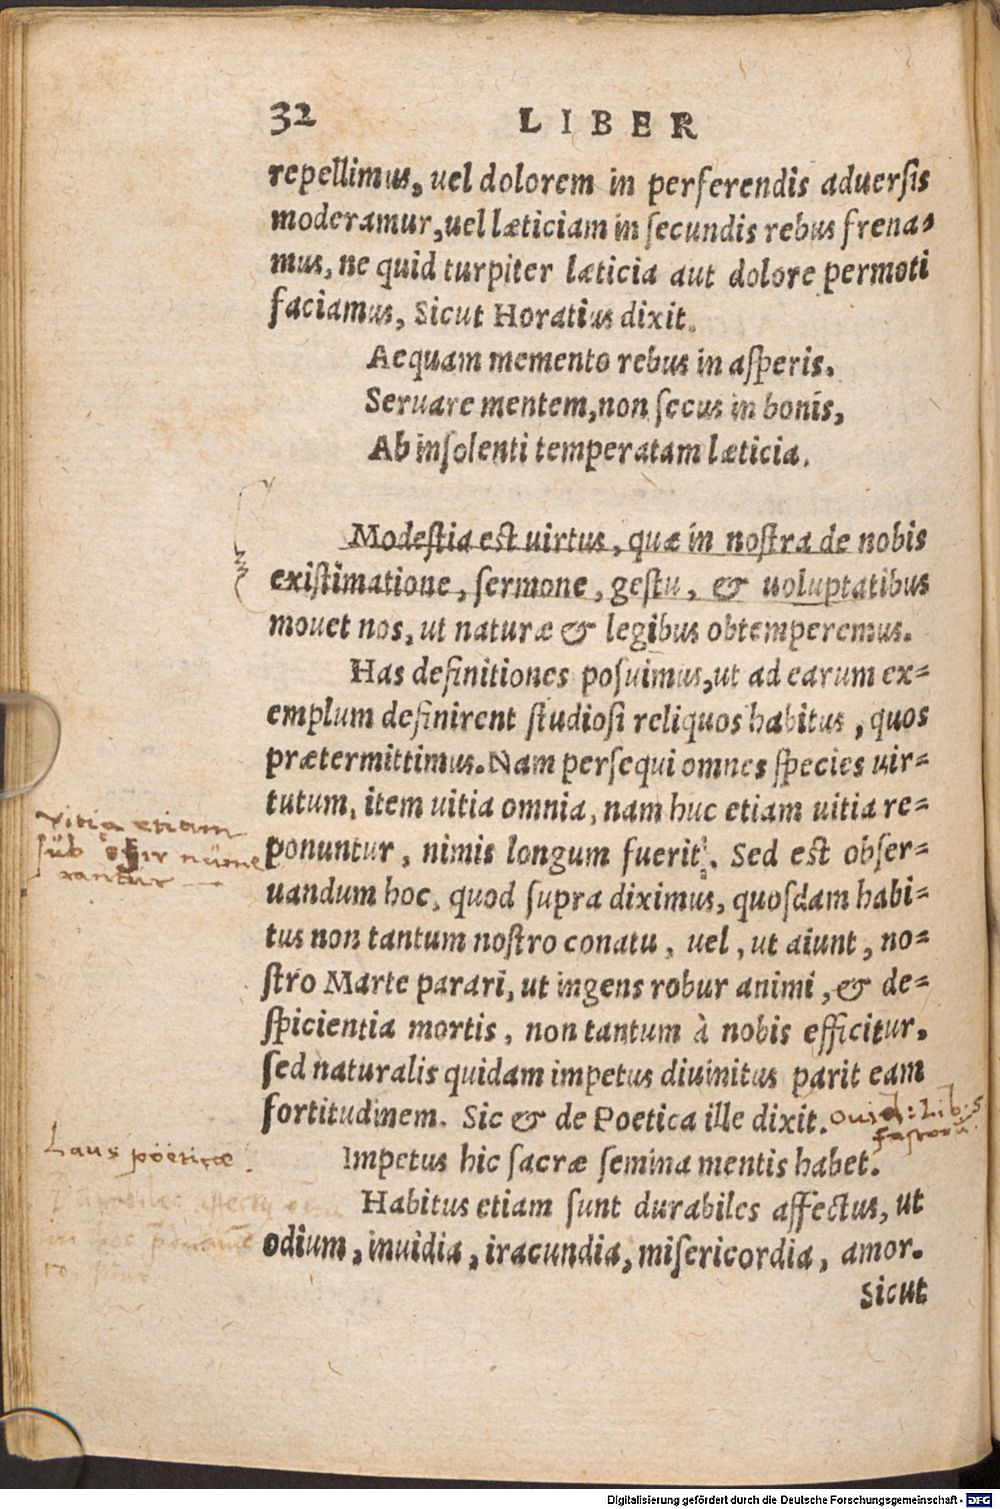 32 LIBER
repellimus, uel dolorem in perferendis aduersis
moderamur, uel læticiam in secundis rebus frena-
mus, ne quid turpiter læticia aut dolore permoti
faciamus, Sicut Horatius dixit.
Aequam memento rebus in asperis.
Seruare mentem, non secus in bonis,
Ab insolenti temperatam læticia.
Modestia est uirtus, quæ in nostra de nobis
existimatione, sermone, gestu, & uoluptatibus
mouet nos, ut naturæ & legibus obtemperemus.
Has definitiones posuimus, ut ad earum ex-
emplum definirent studiosi reliquos habitus, quos
prætermittimus. Nam persequi omnes species uir-
tutum, item uitia omnia, nam huc etiam uitia re-
vitia etiam
sub
rantur
ponuntur, nimis longum fuerit. Sed est obser-
uandum hoc, quod supra diximus, quosdam habi-
tus non tantum nostro conatu, uel, ut aiunt, no-
stro Marte parari, ut ingens robur animi, & de-
spicientia mortis, non tantum à nobis efficitur,
sed naturalis quidam impetus diuinitus parit eam
fortitudinem. Sic & de Poetica ille dixit.
Ouid: Lib: 5
fastorū
Laus pöeticæ.
Impetus hic sacræ semina mentis habet.
Habitus etiam sunt durabiles affectus, ut
odium, inuidia, iracundia, misericordia, amor.
Sicut
Digitalisierung gefördert durch die Deutsche Forschungsgemeinschaft - DFG